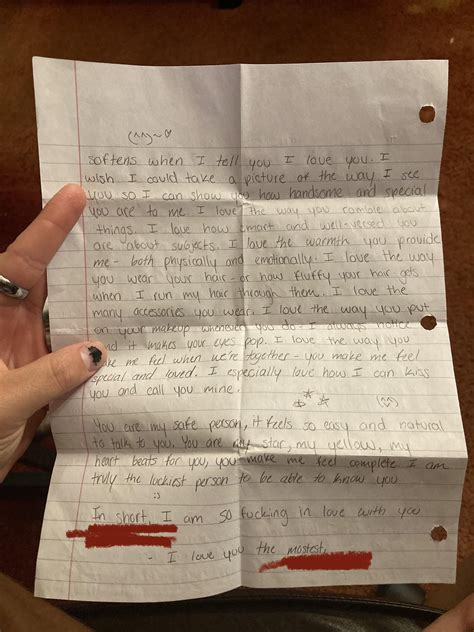 (^^)~♡
softens when I tell you I love you. I
wish I could take a picture of the way I see
you so I can show you how handsome and special
you are to me. I love the way you ramble about
things. I love how smart and well-versed you
are about subjects. I love the warmth you provide
me - both physically and emotionally. I love the way
you wear your hair - or how fluffy your hair gets
when I run my hair through them. I love the
many accessories you wear. I love the way you put
on your makeup whenever you do - I always notice
and it makes your eyes pop. I love the way you
make me feel when we're together - you make me feel
special and loved. I especially love how I can kiss
you and call you mine.
You are my safe person, it feels so easy and natural
to talk to you. You are my star, my yellow, my
heart beats for you, you make me feel complete I am
truly the luckiest person to be able to know you
:)
In short, I am so fucking in love with you
- I love you the mostest,